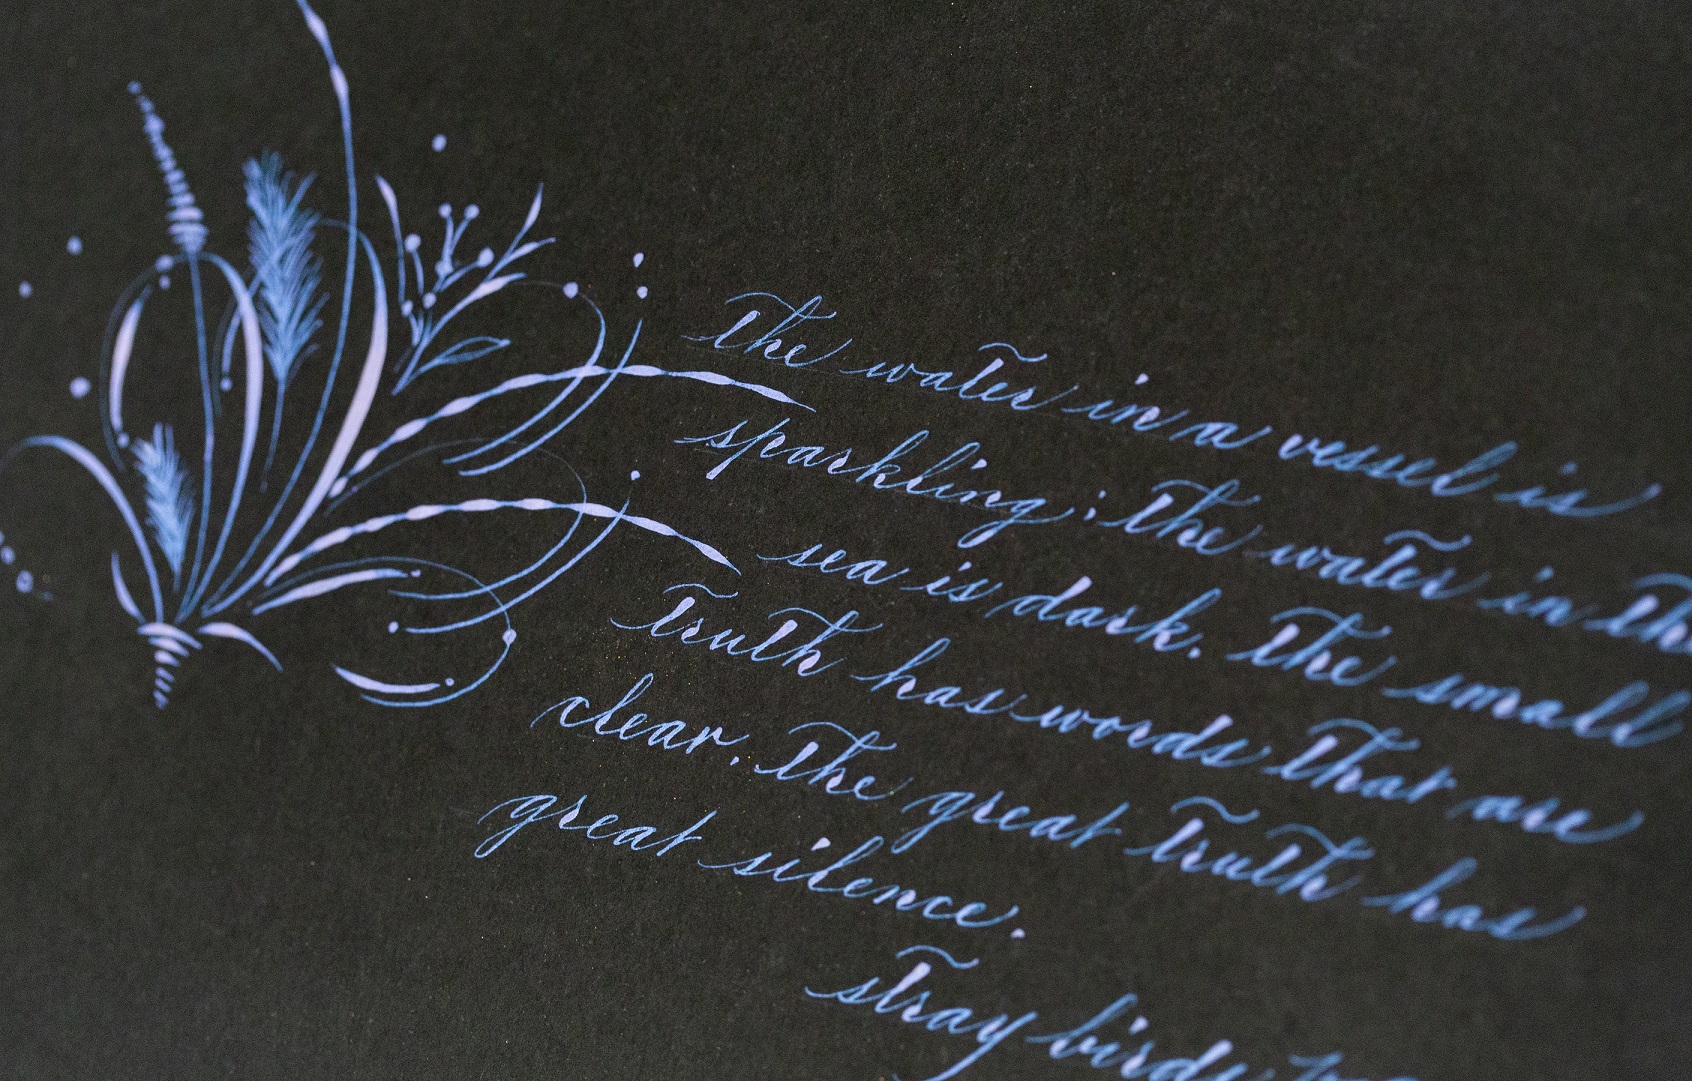 the water in a vessel is
sparkling; the water in the
sea is dark. the small
truth has words that are
clear. the great truth has
great silence.
stray birds